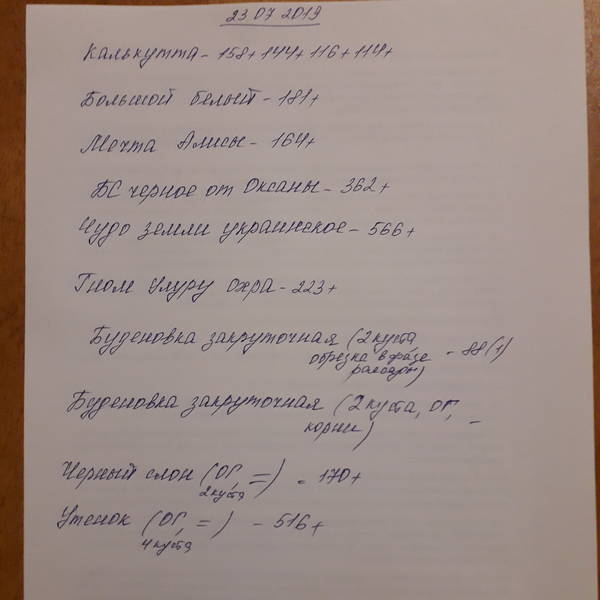 23 07 2019
Калькутта - 158+144+116+114+
Большой белый - 181+
Мечта Алисы - 164+
БС черное от Оксаны - 362+
Чудо земли украинское - 566+
Гном Улуру Охра - 223+
Буденовка закруточная (2 куста
обрезка в фазе - 88(1)
рассады)
Буденовка закруточная (2 куста, ОГ, -
корни)
Черный слон (ОГ, =) - 170+
2 куста
Утенок (ОГ, =) - 516+
4 куста